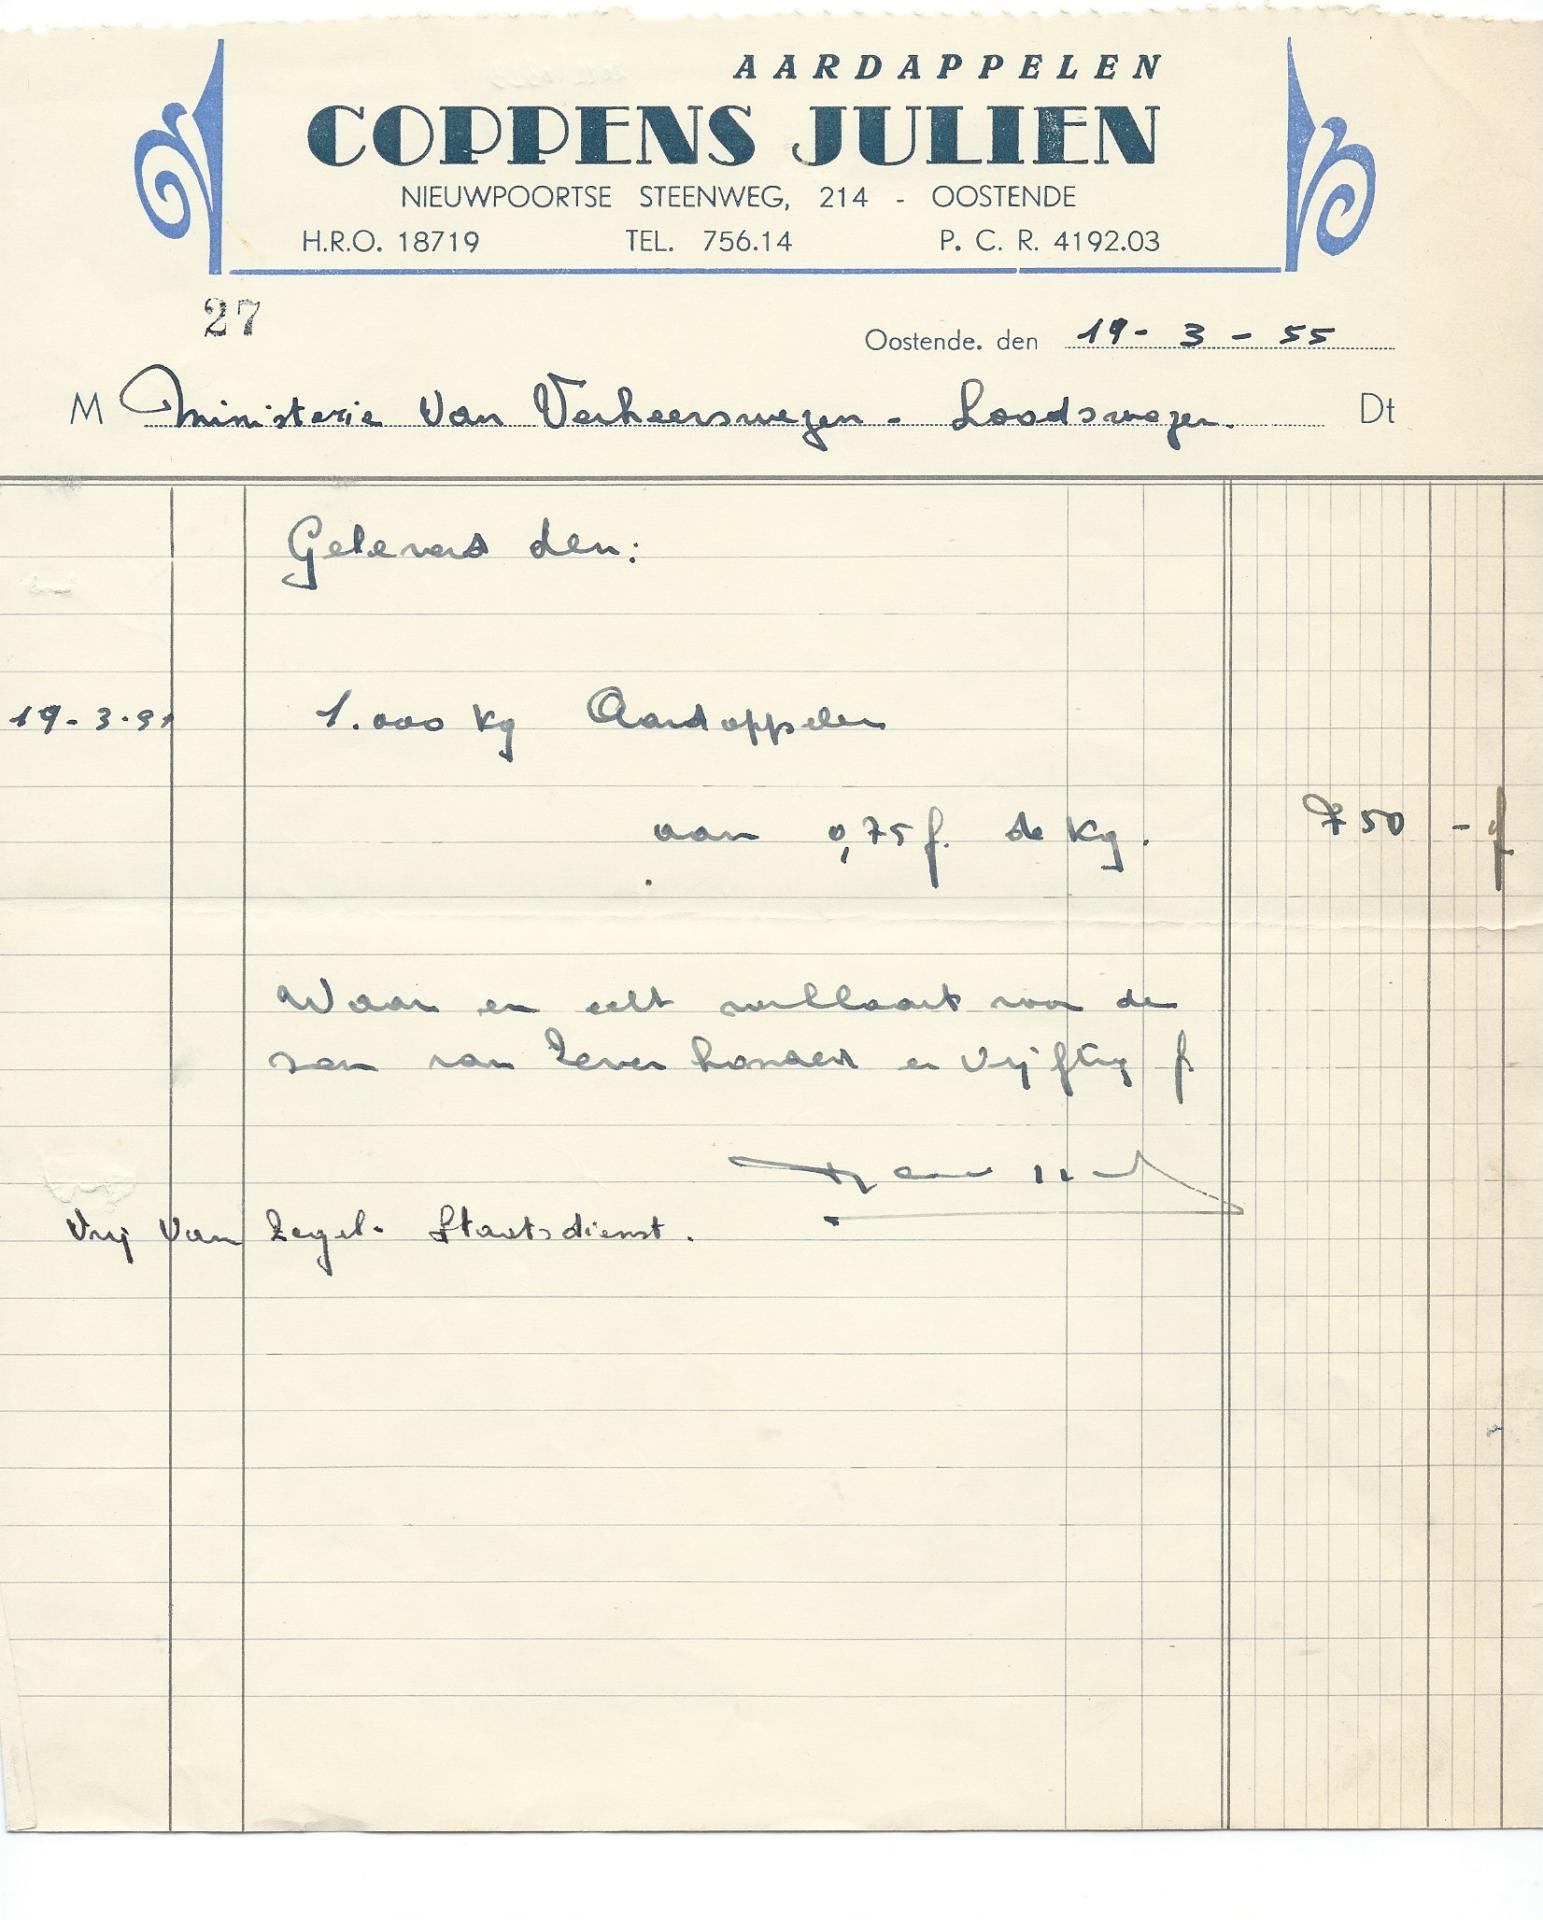 AARDAPPELEN
COPPENS JULIEN
NIEUWPOORTSE STEENWEG, 214 - OOSTENDE
H.R.O. 18719 TEL. 756.14 P. C. R. 4192.03
27
Oostende. den 19-3-55
M Ministerie Van Verkeerswezen - Loodswezen. Dt
Geleverd den:
19-3-
1.000 Kg Aardappelen
aan 0,75 f. de Kg. 750 - f
Waar en echt verklaart voor de
som van Zeven honderd en Vijftig f
Vrij Van Zegel. Staatsdienst.